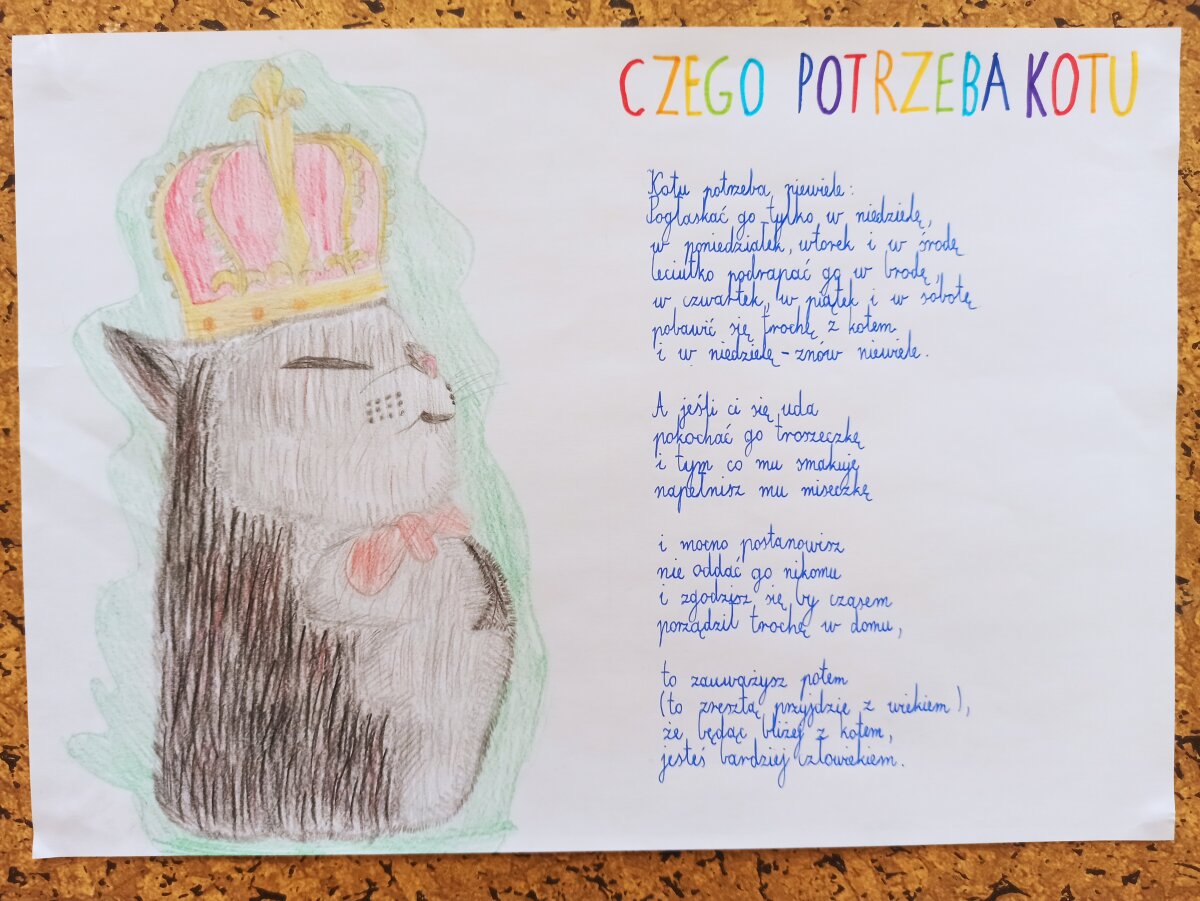 CZEGO POTRZEBA KOTU
Kotu potrzeba niewiele:
Pogłaskać go tylko w niedzielę,
w poniedziałek, wtorek i w środę
leciutko podrapać go w brodę,
w czwartek, w piątek i w sobotę
pobawić się trochę z kotem
i w niedzielę - znów niewiele.
A jeśli ci się uda
pokochać go troszeczkę
i tym co mu smakuje
napełnisz mu miseczkę
i mocno postanowisz
nie oddać go nikomu
i zgodzisz się by czasem
porządził trochę w domu,
to zauważysz potem
(to zresztą przyjdzie z wiekiem),
że będąc bliżej z kotem,
jesteś bardziej człowiekiem.